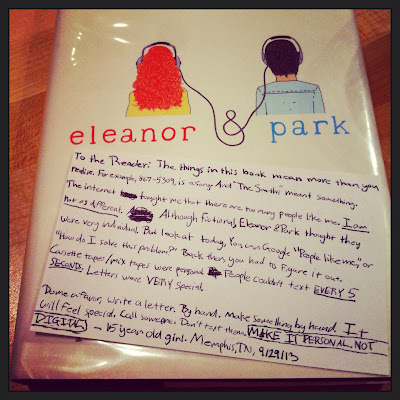 eleanor & park
To the Reader: The things in this book mean more than you
realize. For example, 867-5309, is a song. And "The Smiths" meant something.
The internet taught me that there are too many people like me. I am
not as different. Although fictional, Eleanor & Park thought they
were very individual. But look at today, You can Google "People like me," or
"How do I solve this problem?" Back then, you had to figure it out.
Cassette tapes/mix tapes were personal. People couldn't text EVERY 5
SECONDS. Letters were VERY special.
Do me a favor, write a letter. By hand. Make something by hand. It
will feel special. Call someone. Don't text them. MAKE IT PERSONAL. NOT
DIGITAL - 15 year old girl. Memphis, TN, 9/29/13